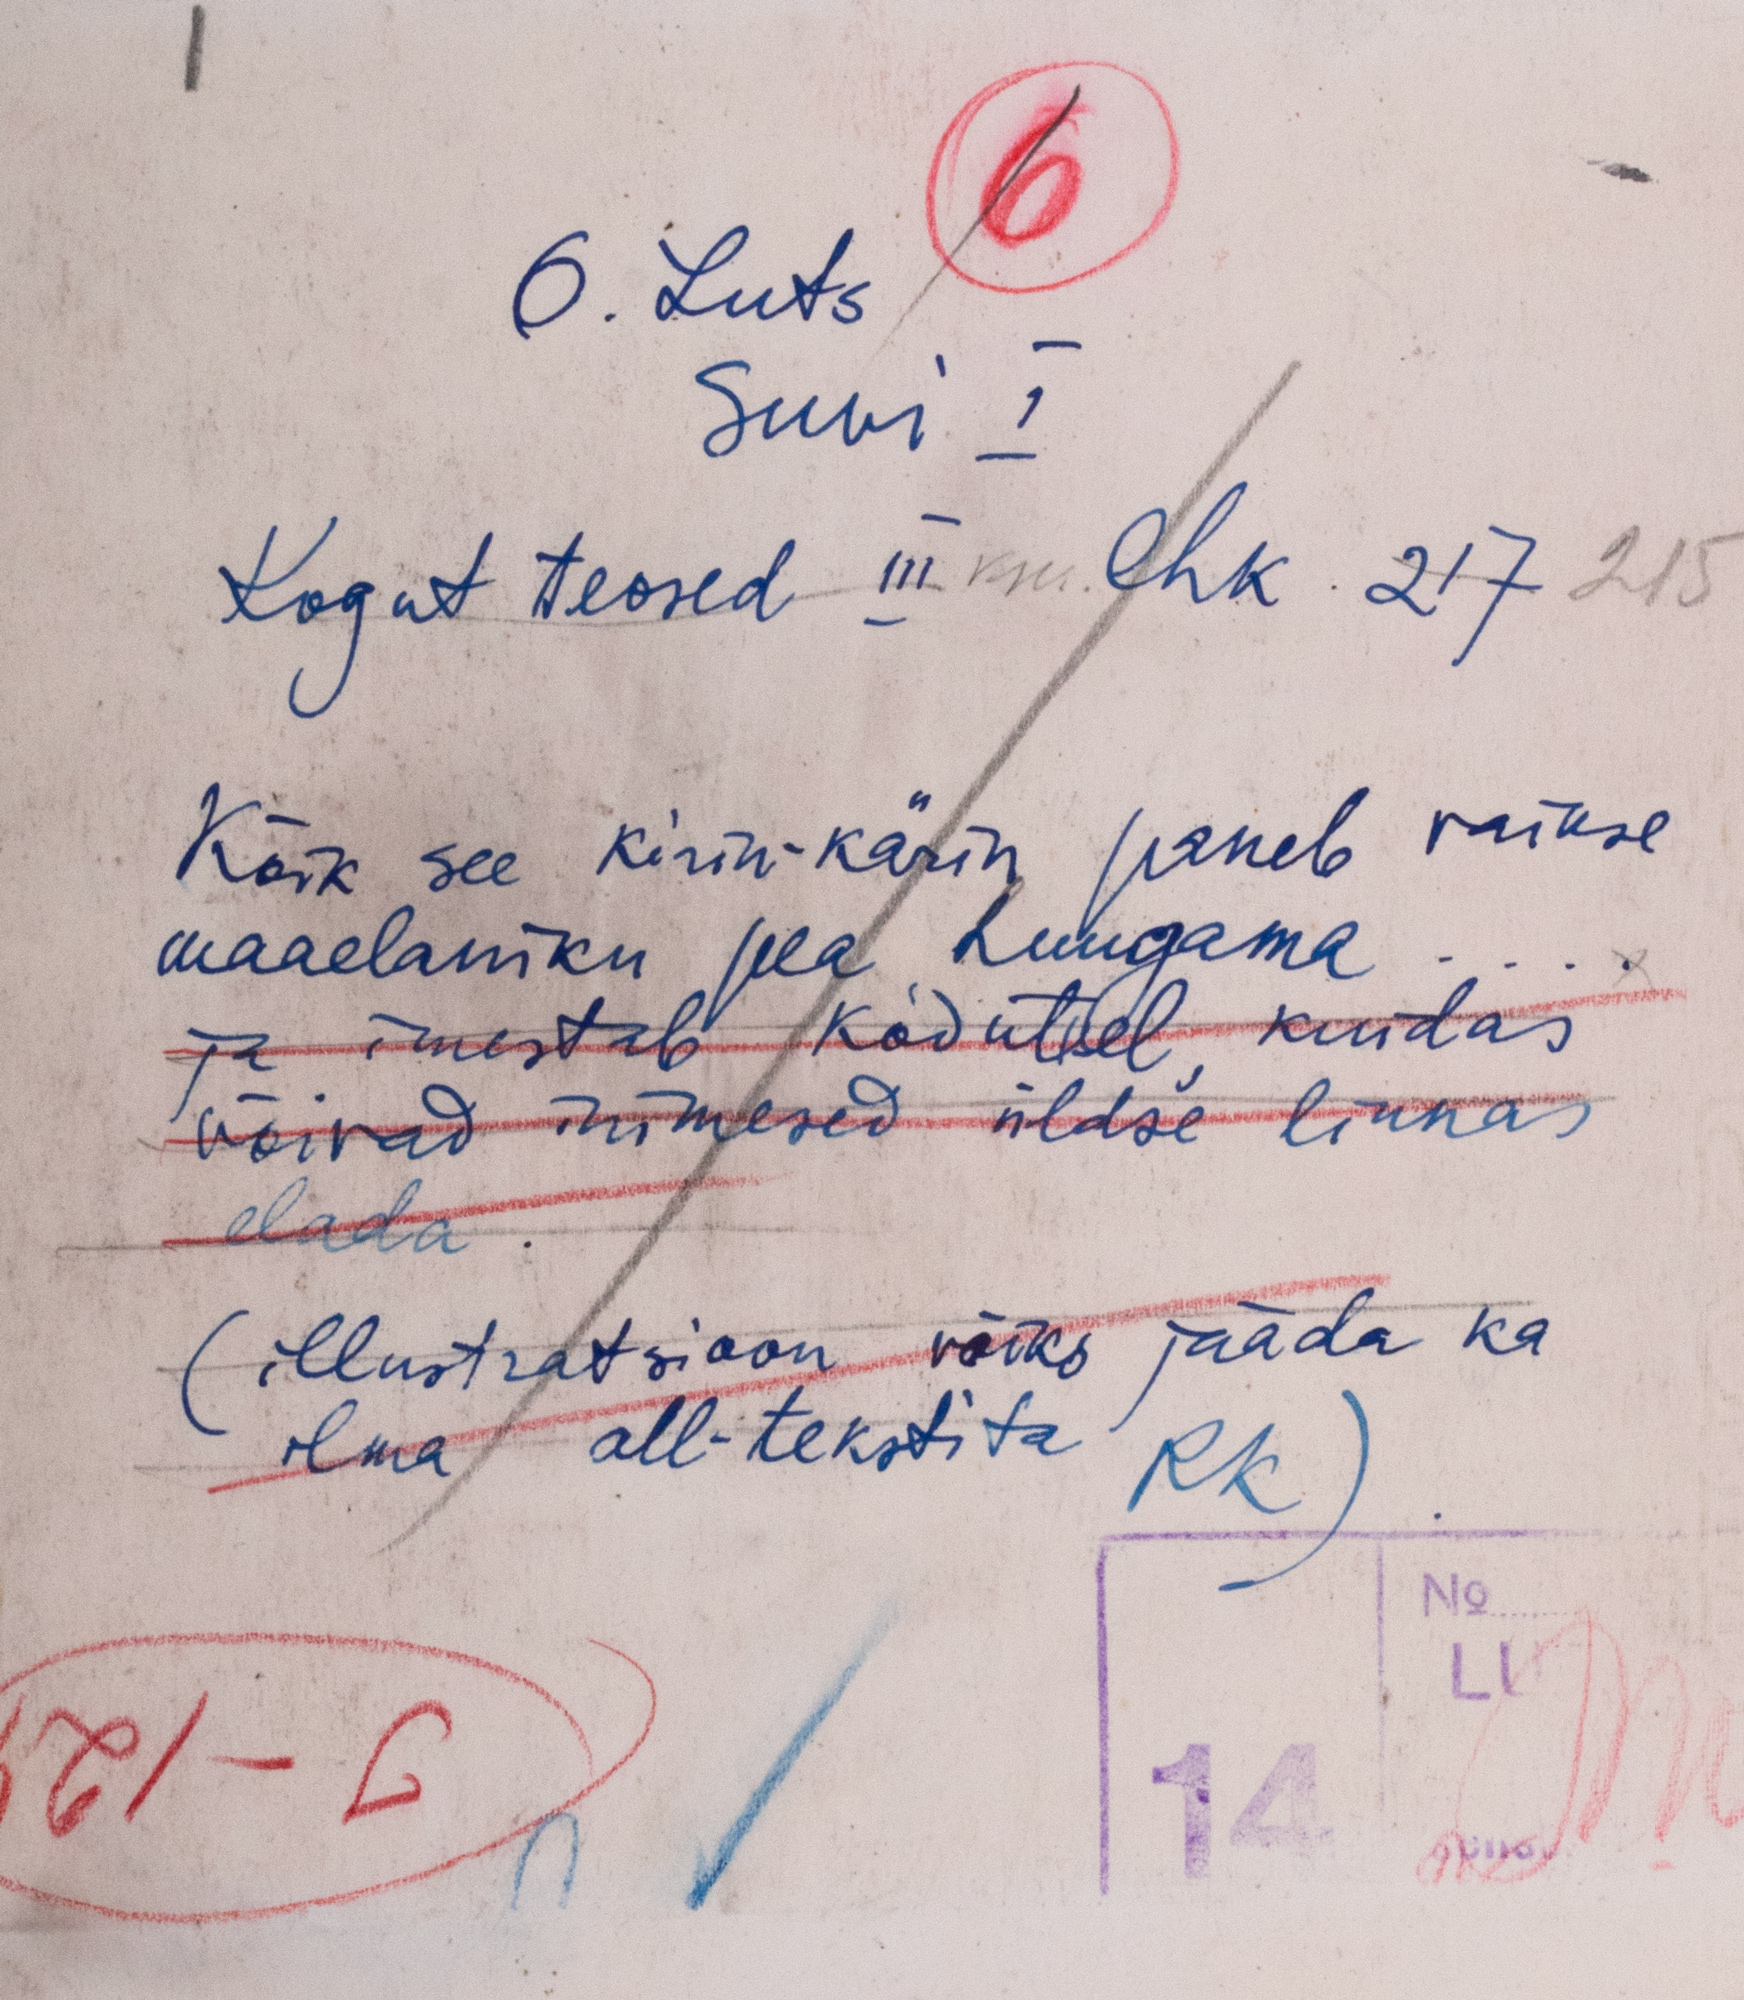 6
O. Luts
Suvi I
Kogut teosed III lhk 217 215
Kõik see kirin-kärin paneb vaikse
maaelaniku pea huugama ....
ja imestab ködutsel, kuidas
võivad inimesed üldse linnas
elada.
(illustratsioon võiks jääda ka
ilma all-tekstita RK).
No
14